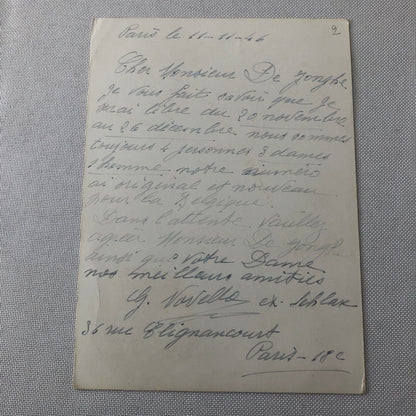 Paris le 11-11-46
2
Cher Monsieur De Jonghe
je vous faits savoir que je
serai libre du 20 novembre
au 26 décembre nous sommes
toujours 4 personnes 3 dames
1 homme notre numéro
ai original et nouveau
pour la Belgique.
Dans l'attente Veuillez
agréer Monsieur De Jonghe
ainsi que votre Dame
nos meilleurs amitiés
36 rue Clignancourt
Paris - 18e